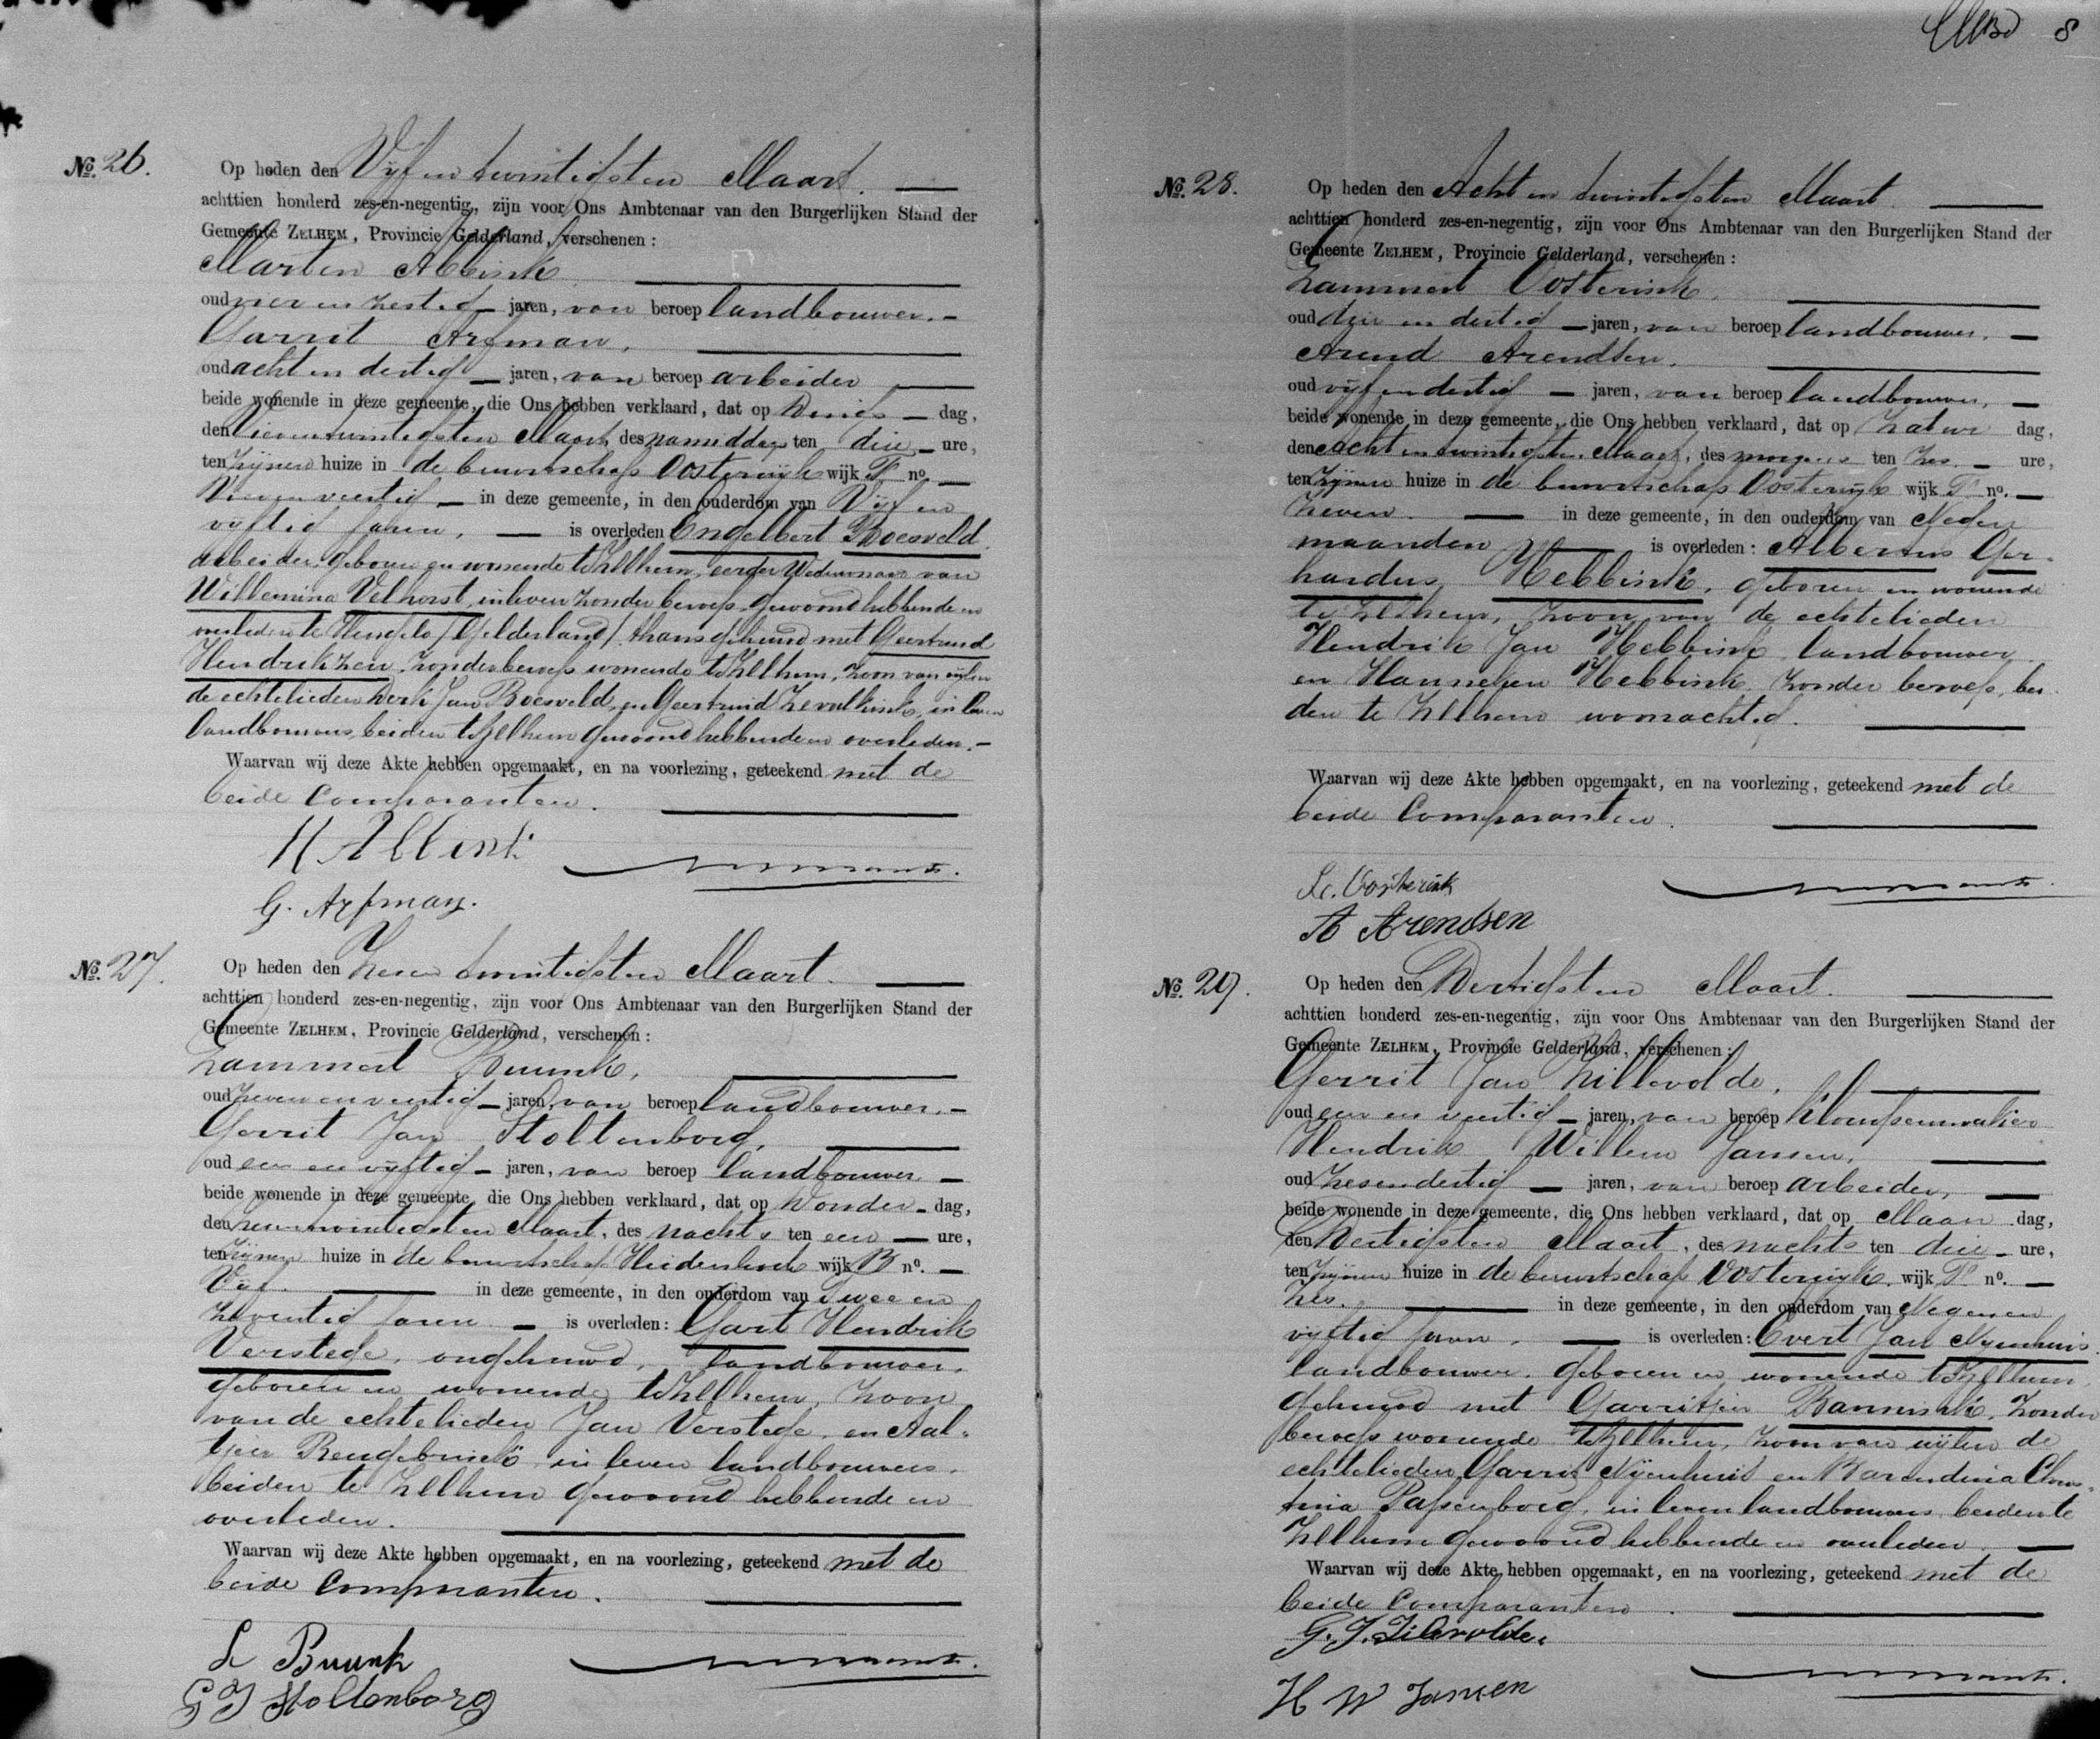 8
No. 26.
Op heden den Vijf en twintigsten Maart.
achttien honderd zes-en-negentig, zijn voor Ons Ambtenaar van den Burgerlijken Stand der
Gemeente ZELHEM, Provincie Gelderland, verschenen:
Marten Abbink
oud vier en zestig jaren, van beroep landbouwer.
Garrit Arfman,
oud acht en dertig jaren, van beroep arbeider
beide wonende in deze gemeente, die Ons hebben verklaard, dat op Dings dag,
den vierentwintigsten Maart, des namiddags ten drie ure,
ten zijnen huize in de buurtschap Oosterwijk wijk F no.
Vierenveertig in deze gemeente, in den ouderdom van Vijf en
vijftig jaren, is overleden Engelbert Boesveld.
arbeider, geboren en wonende te Zelhem, eerder Weduwnaar van
Willemina Velhorst, in leven zonder beroep, gewoond hebbende en
overleden te Hengelo (Gelderland), thans gehuwd met Geertruid
Hendrikzen, zonder beroep wonende te Zelhem, zoon van wijlen
de echtelieden Derk Jan Boesveld en Geertruid Zevalkink, in leven
landbouwers, beiden te Zelhem gewoond hebbende en overleden.
Waarvan wij deze Akte hebben opgemaakt, en na voorlezing, geteekend met de
beide Comparanten.
M Abbink
G. Arfman.
No. 27.
Op heden den Zesen twintigsten Maart.
achttien honderd zes-en-negentig, zijn voor Ons Ambtenaar van den Burgerlijken Stand der
Gemeente ZELHEM, Provincie Gelderland, verschenen:
Lammert Buunk,
oud zeven en veertig jaren, van beroep landbouwer.
Gerrit Jan Stoltenborg,
oud een en vijftig jaren, van beroep landbouwer
beide wonende in deze gemeente, die Ons hebben verklaard, dat op Donder dag,
den zesentwintigsten Maart, des nachts ten een ure,
ten zijnen huize in de buurtschap Heidenhoek wijk B no.
Vijf. in deze gemeente, in den ouderdom van Twee en
zeventig jaren is overleden: Gart Hendrik
Verstege, ongehuwd, landbouwer,
geboren en wonende te Zelhem, zoon
van de echtelieden Jan Verstege, en Aal-
tjen Rengebrink in leven landbouwers,
beiden te Zelhem gewoond hebbende en
overleden.
Waarvan wij deze Akte hebben opgemaakt, en na voorlezing, geteekend met de
beide Comparanten.
L Buunk
G J Stoltenborg
No. 28.
Op heden den Acht en twintigsten Maart.
achttien honderd zes-en-negentig, zijn voor Ons Ambtenaar van den Burgerlijken Stand der
Gemeente ZELHEM, Provincie Gelderland, verschenen:
Lammert Oosterink,
oud drie en dertig jaren, van beroep landbouwer,
Arend Arendsen,
oud vijf en dertig jaren, van beroep landbouwer,
beide wonende in deze gemeente, die Ons hebben verklaard, dat op Zatur dag,
den acht en twintigsten Maart, des morgens ten zes ure,
ten zijnen huize in de buurtschap Oosterwijk wijk F no.
Zeven. in deze gemeente, in den ouderdom van Negen
maanden is overleden: Albertus Ger-
hardus Hebbink, geboren en wonende
te Zelhem, zoon van de echtelieden
Hendrik Jan Hebbink, landbouwer
en Hanneken Hebbink, zonder beroep, bei-
den te Zelhem woonachtig.
Waarvan wij deze Akte hebben opgemaakt, en na voorlezing, geteekend met de
beide Comparanten.
L. Oosterink
A Arendsen
No. 29.
Op heden den Dertigsten Maart.
achttien honderd zes-en-negentig, zijn voor Ons Ambtenaar van den Burgerlijken Stand der
Gemeente ZELHEM, Provincie Gelderland, verschenen:
Gerrit Jan Zillevolde,
oud een en veertig jaren, van beroep klompenmaker
Hendrik Willem Jansen,
oud zesendertig jaren, van beroep arbeider,
beide wonende in deze gemeente, die Ons hebben verklaard, dat op Maan dag,
den Dertigsten Maart, des nachts ten drie ure,
ten zijnen huize in de buurtschap Oosterwijk wijk F no.
Zes. in deze gemeente, in den ouderdom van Negenen
vijftig jaren, is overleden: Evert Jan Nijenhuis,
landbouwer, geboren en wonende te Zelhem,
gehuwd met Garritjen Bannink, zonder
beroep wonende te Zelhem, zoon van wijlen de
echtelieden Garrit Nijenhuis en Barendina Chris-
tina Passenborg, in leven landbouwers, beiden te
Zelhem gewoond hebbende en overleden.
Waarvan wij deze Akte hebben opgemaakt, en na voorlezing, geteekend met de
beide Comparanten.
G. J. Zillevolde.
H W Jansen